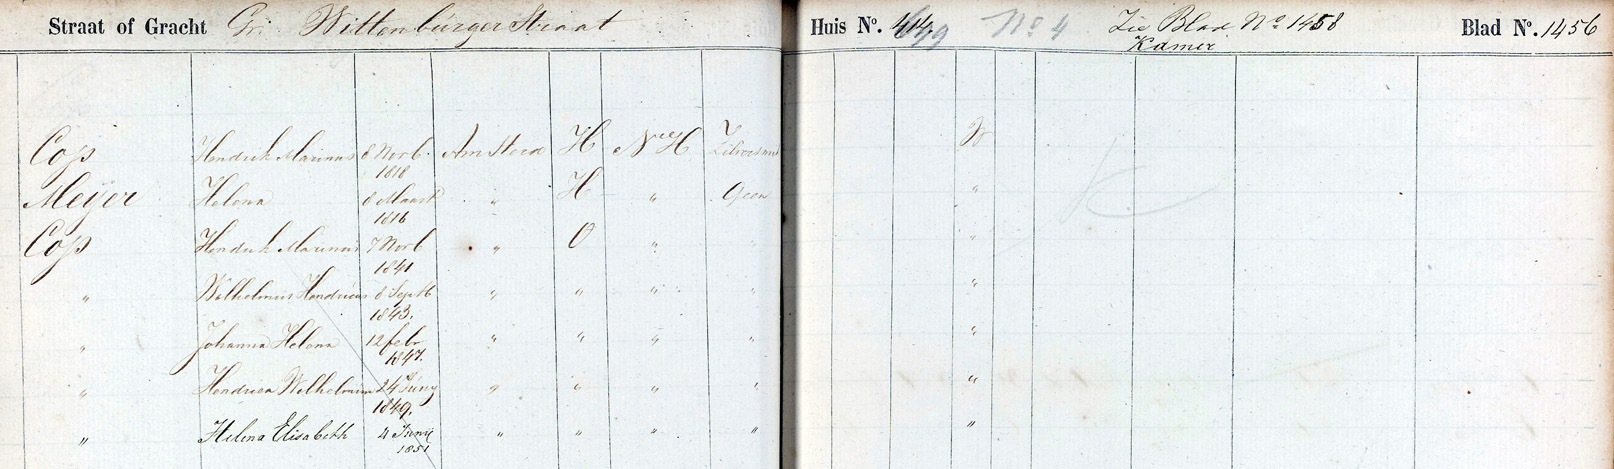 Straat of Gracht Gr: Wittenburger Straat Huis No. 414. No 4 Zie Blad No 1458 Blad No. 1456
Kamer
Cop Hendrik Marinus 8 Novb. Amsterd H N H
1818
Meijer Helena 8 Maart " H " Geen "
1816
Cop Hendrik Marinus 7 Novb " O " "
1841
" Wilhelmus Hendricus 8 Septb " " " " "
1843.
" Johanna Helena 12 febr " " " " "
1847.
" Hendrica Wilhelmina 24 Juny " " " " "
1849.
" Helena Elisabeth 4 Junij " " " " "
1851